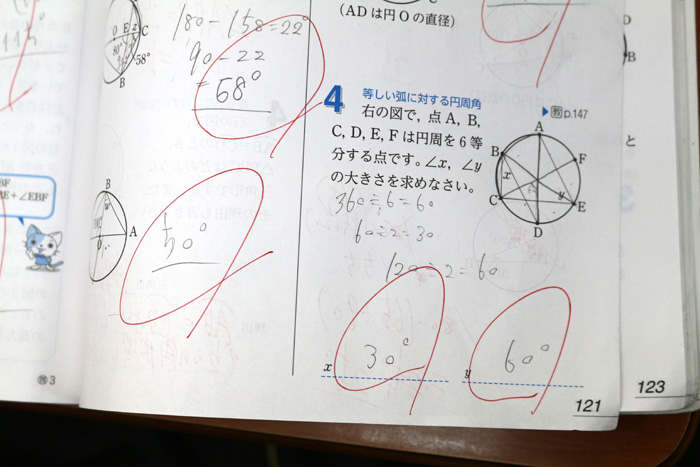 180-158=22°
90-22
=68°
58°
80°
O
E
C
B
B
A
50°
BF
E+∠EBF
3
(ADは円Oの直径)
4 等しい弧に対する円周角
▶教p.147
右の図で,点A, B,
C, D, E, Fは円周を6等
分する点です。∠x, ∠y
の大きさを求めなさい。
A
B
F
x
y
C
E
D
360÷6=60
60÷2=30
120÷2=60
x 30°
y 60°
121
D
B
と
123